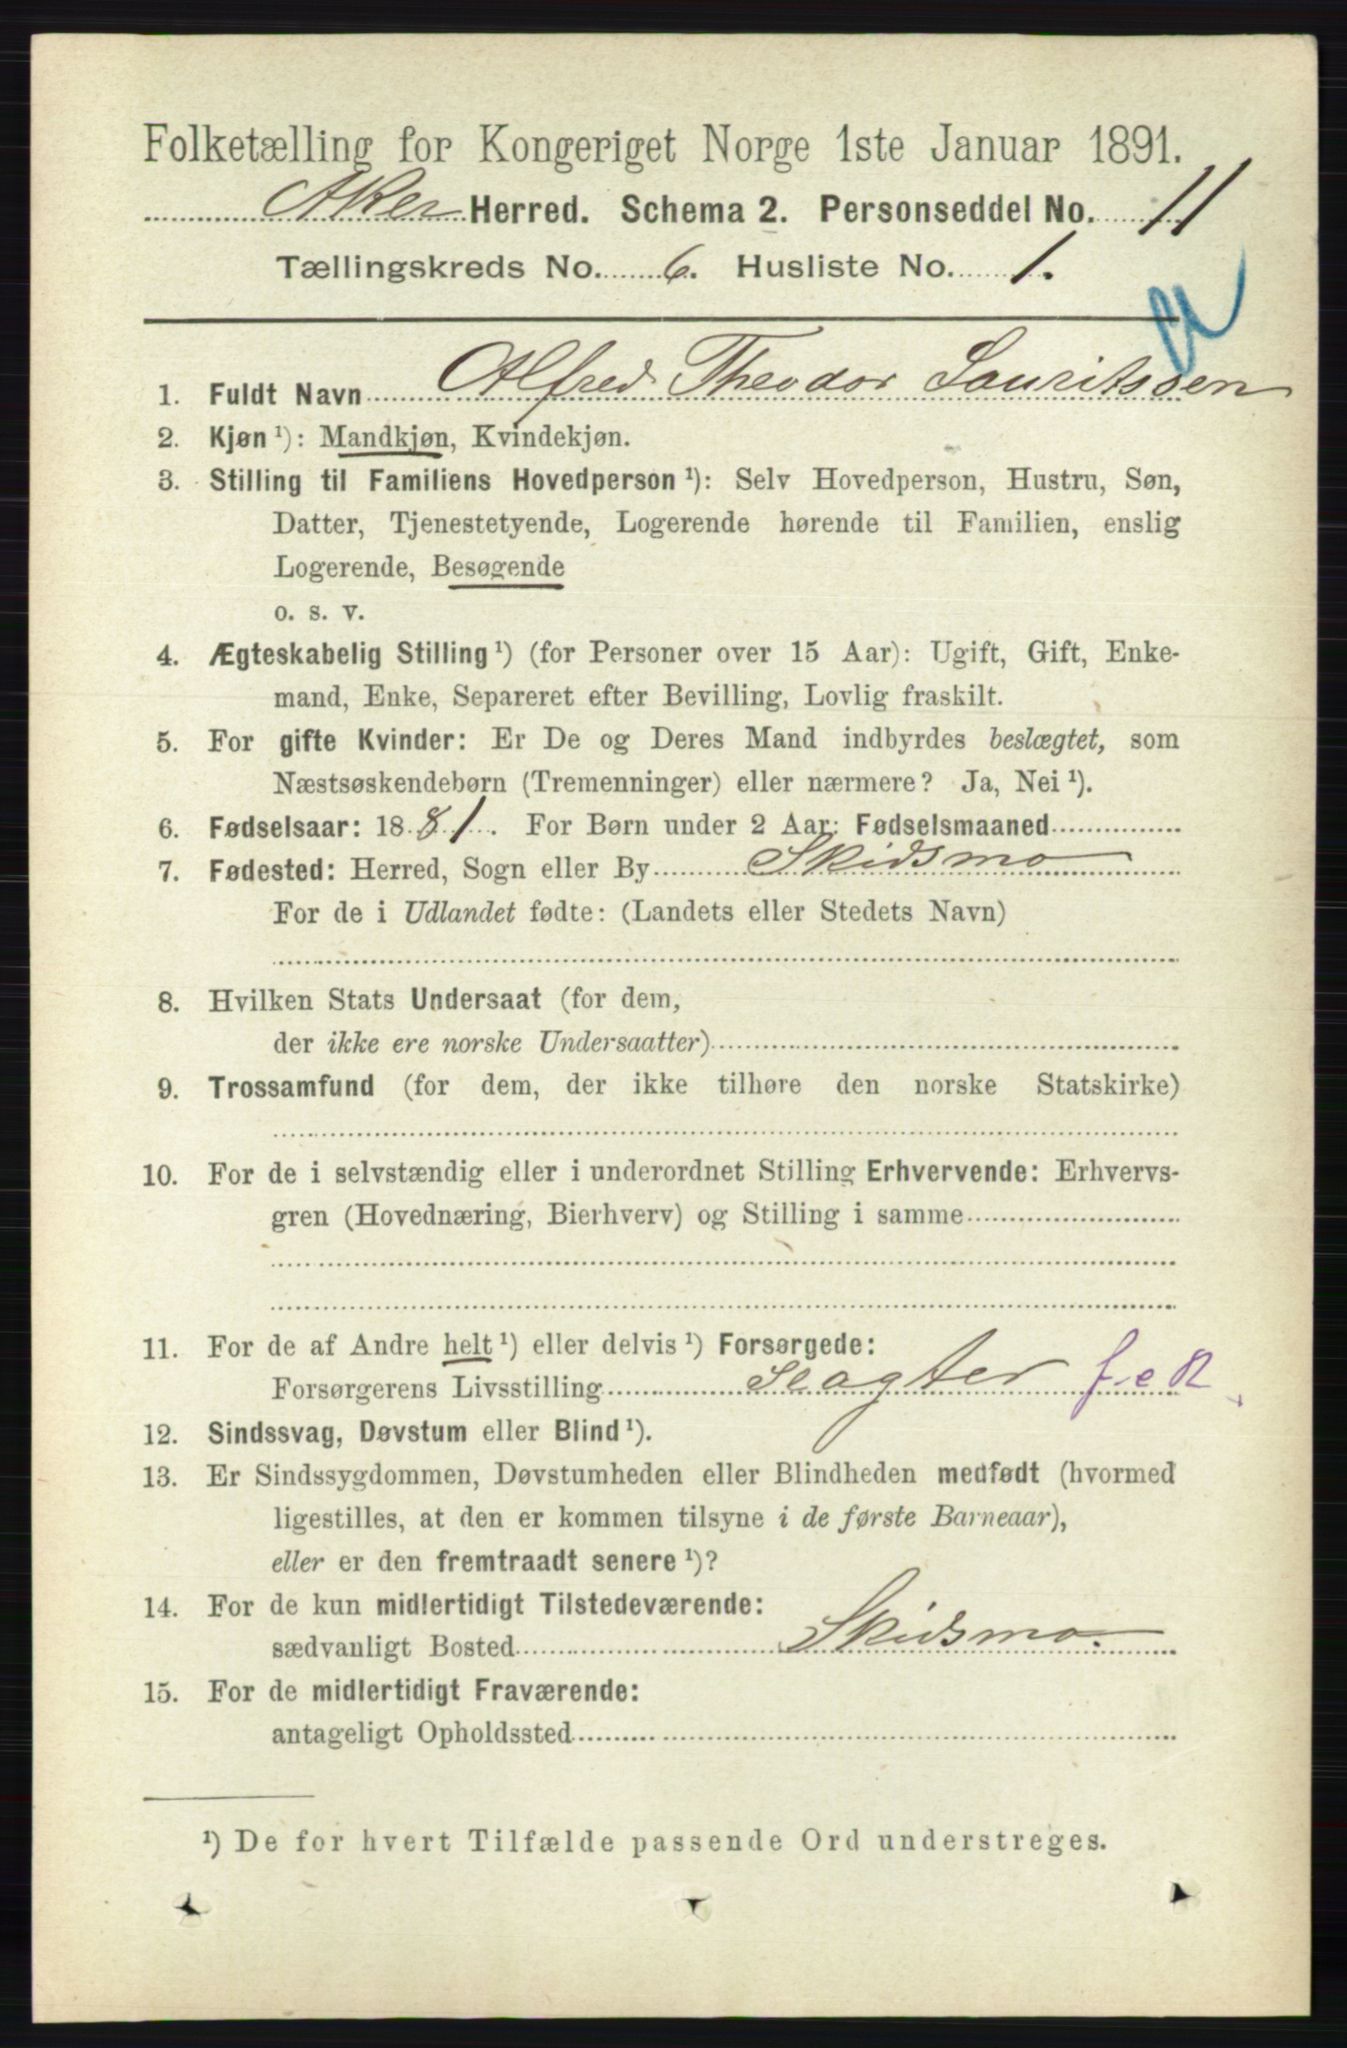 Folketælling for Kongeriget Norge 1ste Januar 1891.
Aker Herred. Schema 2. Personseddel No. 11
Tællingskreds No. 6. Husliste No. 1.
1. Fuldt Navn Alfred Theodor Lauritssen
2. Kjøn ¹): Mandkjøn, Kvindekjøn.
3. Stilling til Familiens Hovedperson ¹): Selv Hovedperson, Hustru, Søn,
Datter, Tjenestetyende, Logerende hørende til Familien, enslig
Logerende, Besøgende
o. s. v.
4. Ægteskabelig Stilling ¹) (for Personer over 15 Aar): Ugift, Gift, Enke-
mand, Enke, Separeret efter Bevilling, Lovlig fraskilt.
5. For gifte Kvinder: Er De og Deres Mand indbyrdes beslægtet, som
Næstsøskendebørn (Tremenninger) eller nærmere? Ja, Nei ¹).
6. Fødselsaar: 1881. For Børn under 2 Aar: Fødselsmaaned
7. Fødested: Herred, Sogn eller By Skidsmo
For de i Udlandet fødte: (Landets eller Stedets Navn)
8. Hvilken Stats Undersaat (for dem,
der ikke ere norske Undersaatter)
9. Trossamfund (for dem, der ikke tilhøre den norske Statskirke)
10. For de i selvstændig eller i underordnet Stilling Erhvervende: Erhvervs-
gren (Hovednæring, Bierhverv) og Stilling i samme
11. For de af Andre helt ¹) eller delvis ¹) Forsørgede:
Forsørgerens Livsstilling Slagter
12. Sindssvag, Døvstum eller Blind ¹).
13. Er Sindssygdommen, Døvstumheden eller Blindheden medfødt (hvormed
ligestilles, at den er kommen tilsyne i de første Barneaar),
eller er den fremtraadt senere ¹)?
14. For de kun midlertidigt Tilstedeværende:
sædvanligt Bosted Skidsmo.
15. For de midlertidigt Fraværende:
antageligt Opholdssted
¹) De for hvert Tilfælde passende Ord understreges.